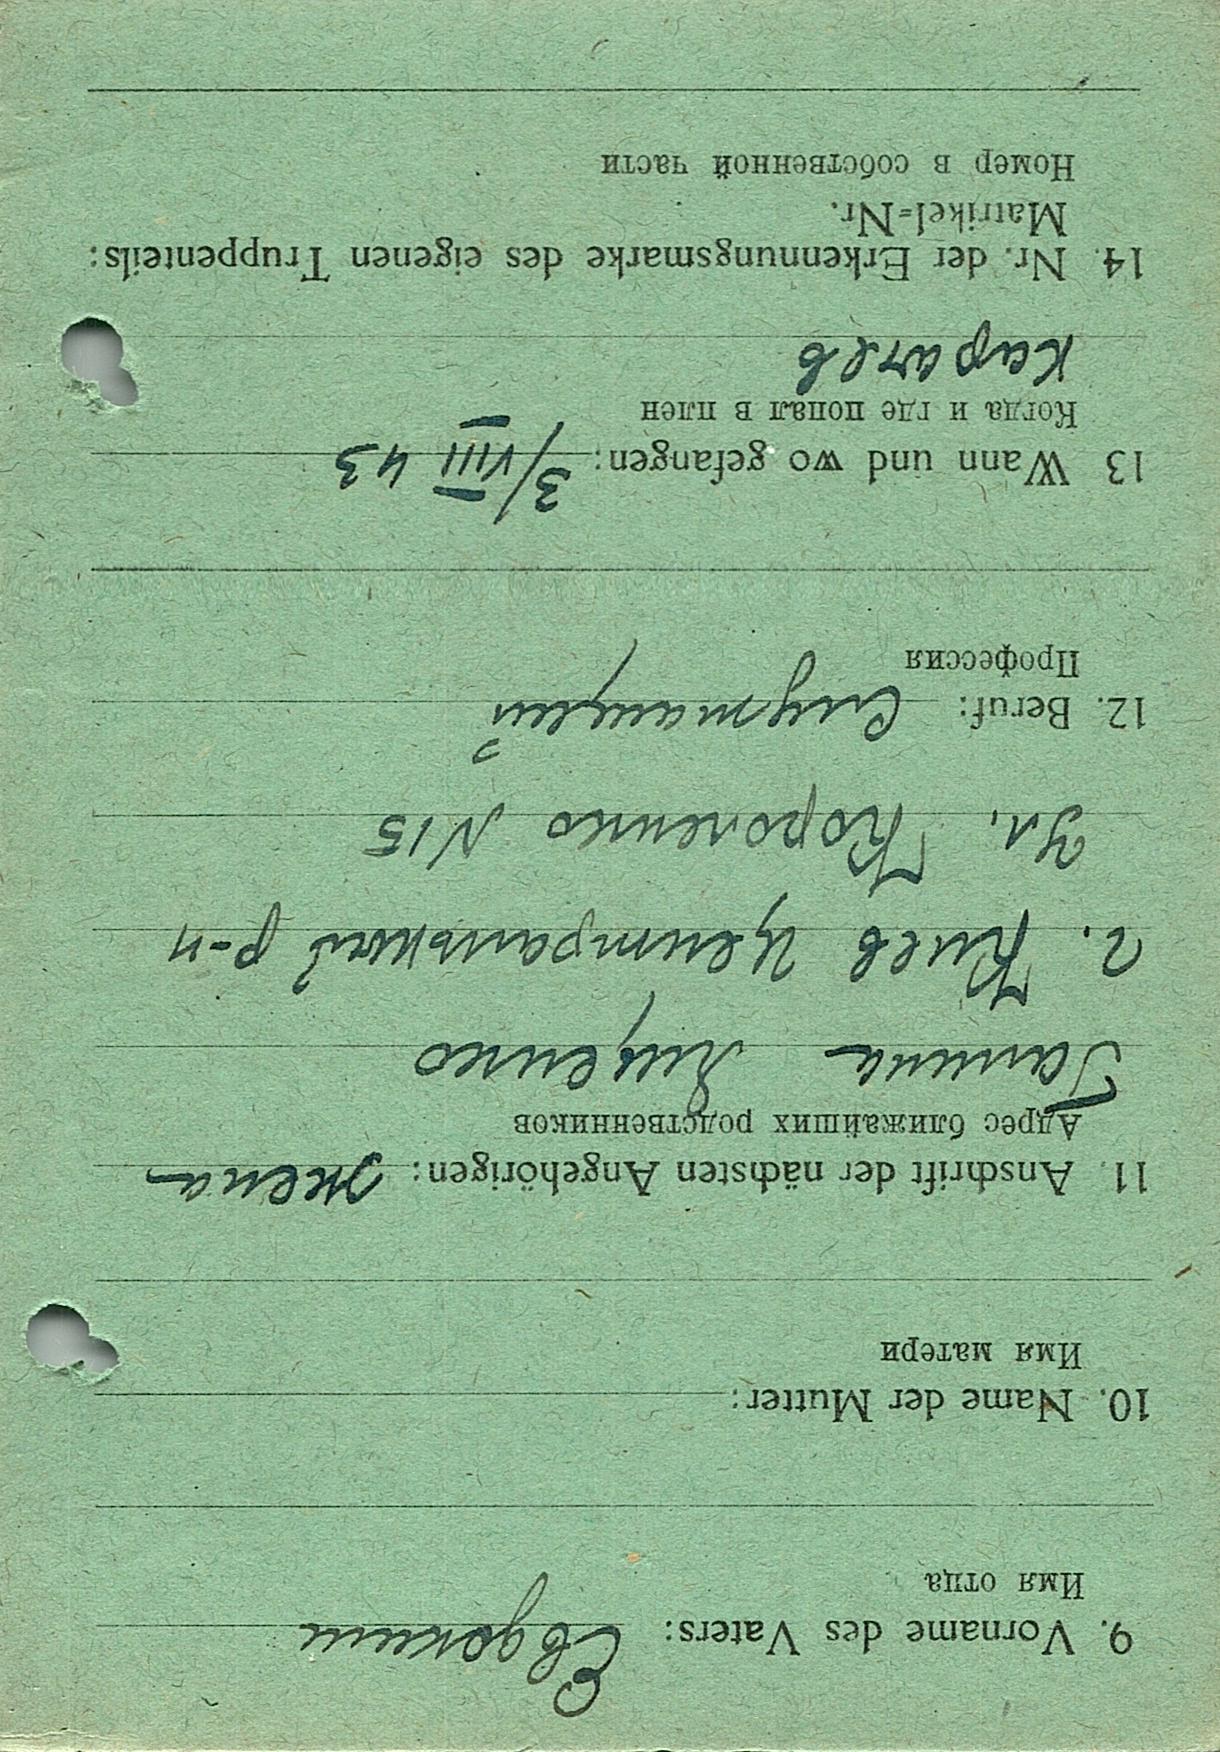 9. Vorname des Vaters: Евдоким
Имя отца
10. Name der Mutter:
Имя матери
11. Anschrift der nächsten Angehörigen: жена
Адрес ближайших родственников
Галина Яценко
г. Киев Центральной р-н
Ул. Короленко N15
12. Beruf: Служащий
Профессия
13 Wann und wo gefangen: 3/VIII 43
Когда и где попал в плен
14. Nr. der Erkennungsmarke des eigenen Truppenteils:
Matrikel=Nr.
Номер в собственной части